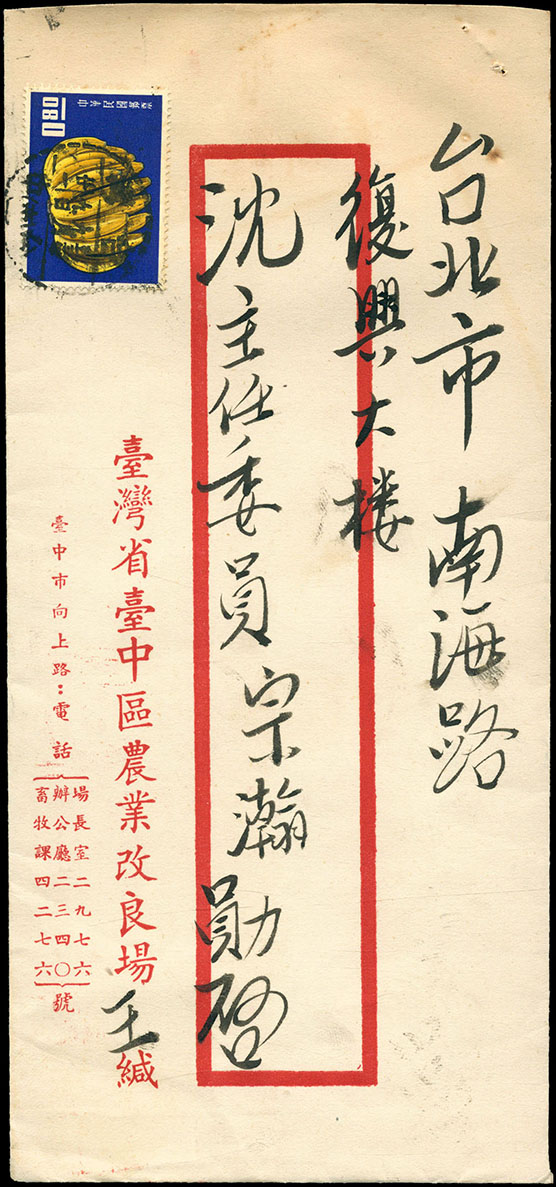 台北市 南海路
復興大楼
沈主任委員宗瀚勛啓
臺灣省臺中區農業改良場王緘
臺中市向上路：電話
場長室二九七六
辦公廳二三四〇
畜牧課四二七六
號
中華民國郵票
0.80